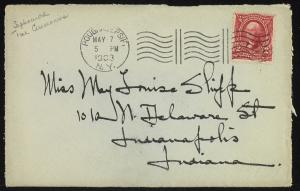 POUGHKEEPSIE
MAY 7
5 PM
1903
N.Y.
Miss May Louise Shipp
1010 N. Delaware St
Indianapolis
Indiana.